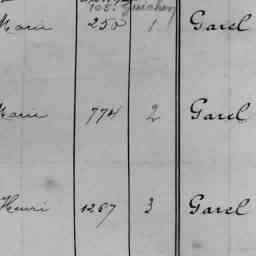 Marie 250 1 Garel
Marie 774 2 Garel
Henri 1267 3 Garel